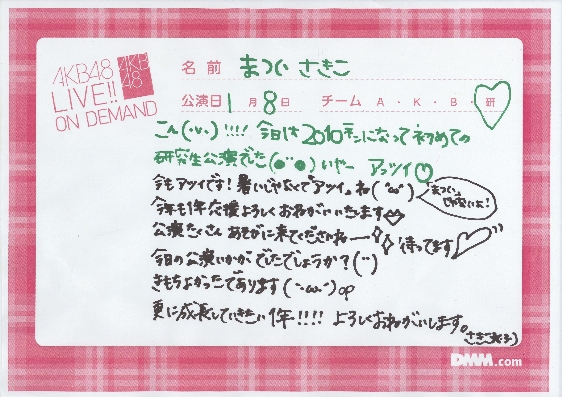 AKB48
LIVE!!
ON DEMAND
AKB
48
名前 まつい さきこ
公演日 1月8日 チーム A・K・B・研
こん(・v・)!!!! 今日は2010年になって初めての
研究生公演でした(●¨●)いやー アッツイ♡
今もアツイです!暑いじゃなくて"アツイ"ね(˘ω˘)
今年も1年応援よろしくおねがいいたします
公演たくさんあそびに来てくださいねー 待ってます
今日の公演いかがでしたでしょうか?(¨)
きもちよかったであります(`・ω・´)
更に成長していきたい1年!!!! よろしくおねがいします。
DMM.com